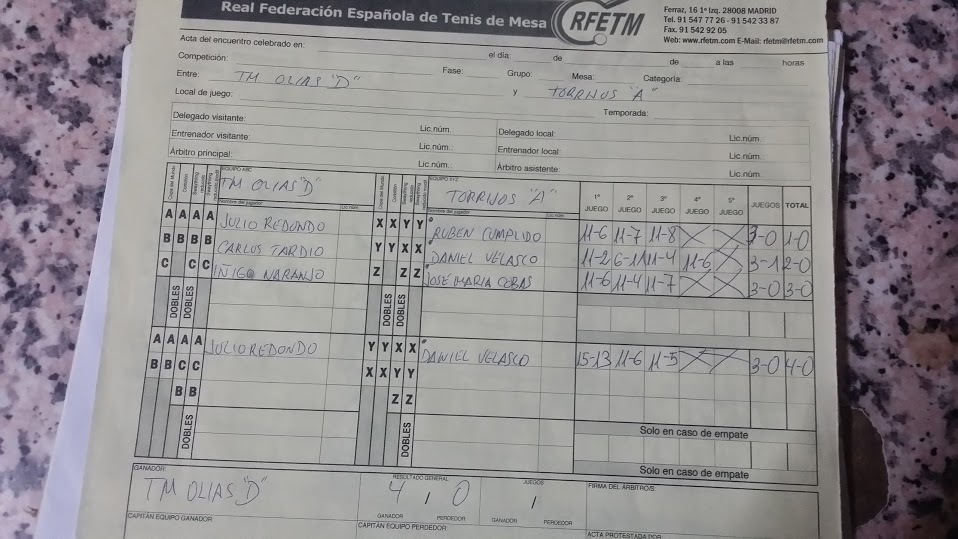 Real Federación Española de Tenis de Mesa
RFETM
Ferraz, 16 1º Izq. 28008 MADRID
Tel. 91 547 77 26 - 91 542 33 87
Fax. 91 542 92 05
Web: www.rfetm.com E-Mail: rfetm@rfetm.com
Acta del encuentro celebrado en: el día: de de a las horas
Competición: Fase: Grupo: Mesa: Categoría:
Entre: TM OLIAS "D" y TORRIJOS "A"
Local de juego: Temporada:
Delegado visitante: Lic.núm. Delegado local: Lic.núm.
Entrenador visitante: Lic.núm. Entrenador local: Lic.núm.
Árbitro principal: Lic.núm. Árbitro asistente: Lic.núm.
Copa del Mundo Corbillon Copa del Mundo Corbillon
EQUIPO ABC TM OLIAS "D" EQUIPO XYZ TORRIJOS "A" 1º JUEGO 2º JUEGO 3º JUEGO 4º JUEGO 5º JUEGO JUEGOS TOTAL
Nombre del jugador Lic.núm. Nombre del jugador Lic.núm.
A A A A JULIO REDONDO X X Y Y RUBEN CUMPLIDO 11-6 11-7 11-8 3-0 1-0
B B B B CARLOS TARDIO Y Y X X DANIEL VELASCO 11-2 6-11 11-4 11-6 3-1 2-0
C C C IÑIGO NARANJO Z Z Z JOSÉ MARIA COBAS 11-6 11-4 11-7 3-0 3-0
DOBLES DOBLES DOBLES DOBLES
A A A A JULIO REDONDO Y Y X X DANIEL VELASCO 15-13 11-6 11-5 3-0 4-0
B B C C X X Y Y
B B Z Z
DOBLES DOBLES
Solo en caso de empate
Solo en caso de empate
GANADOR: TM OLIAS "D" RESULTADO GENERAL 4 / 0 JUEGOS / FIRMA DEL ÁRBITRO/S:
GANADOR PERDEDOR GANADOR PERDEDOR
CAPITÁN EQUIPO GANADOR CAPITÁN EQUIPO PERDEDOR ACTA PROTESTADA POR: